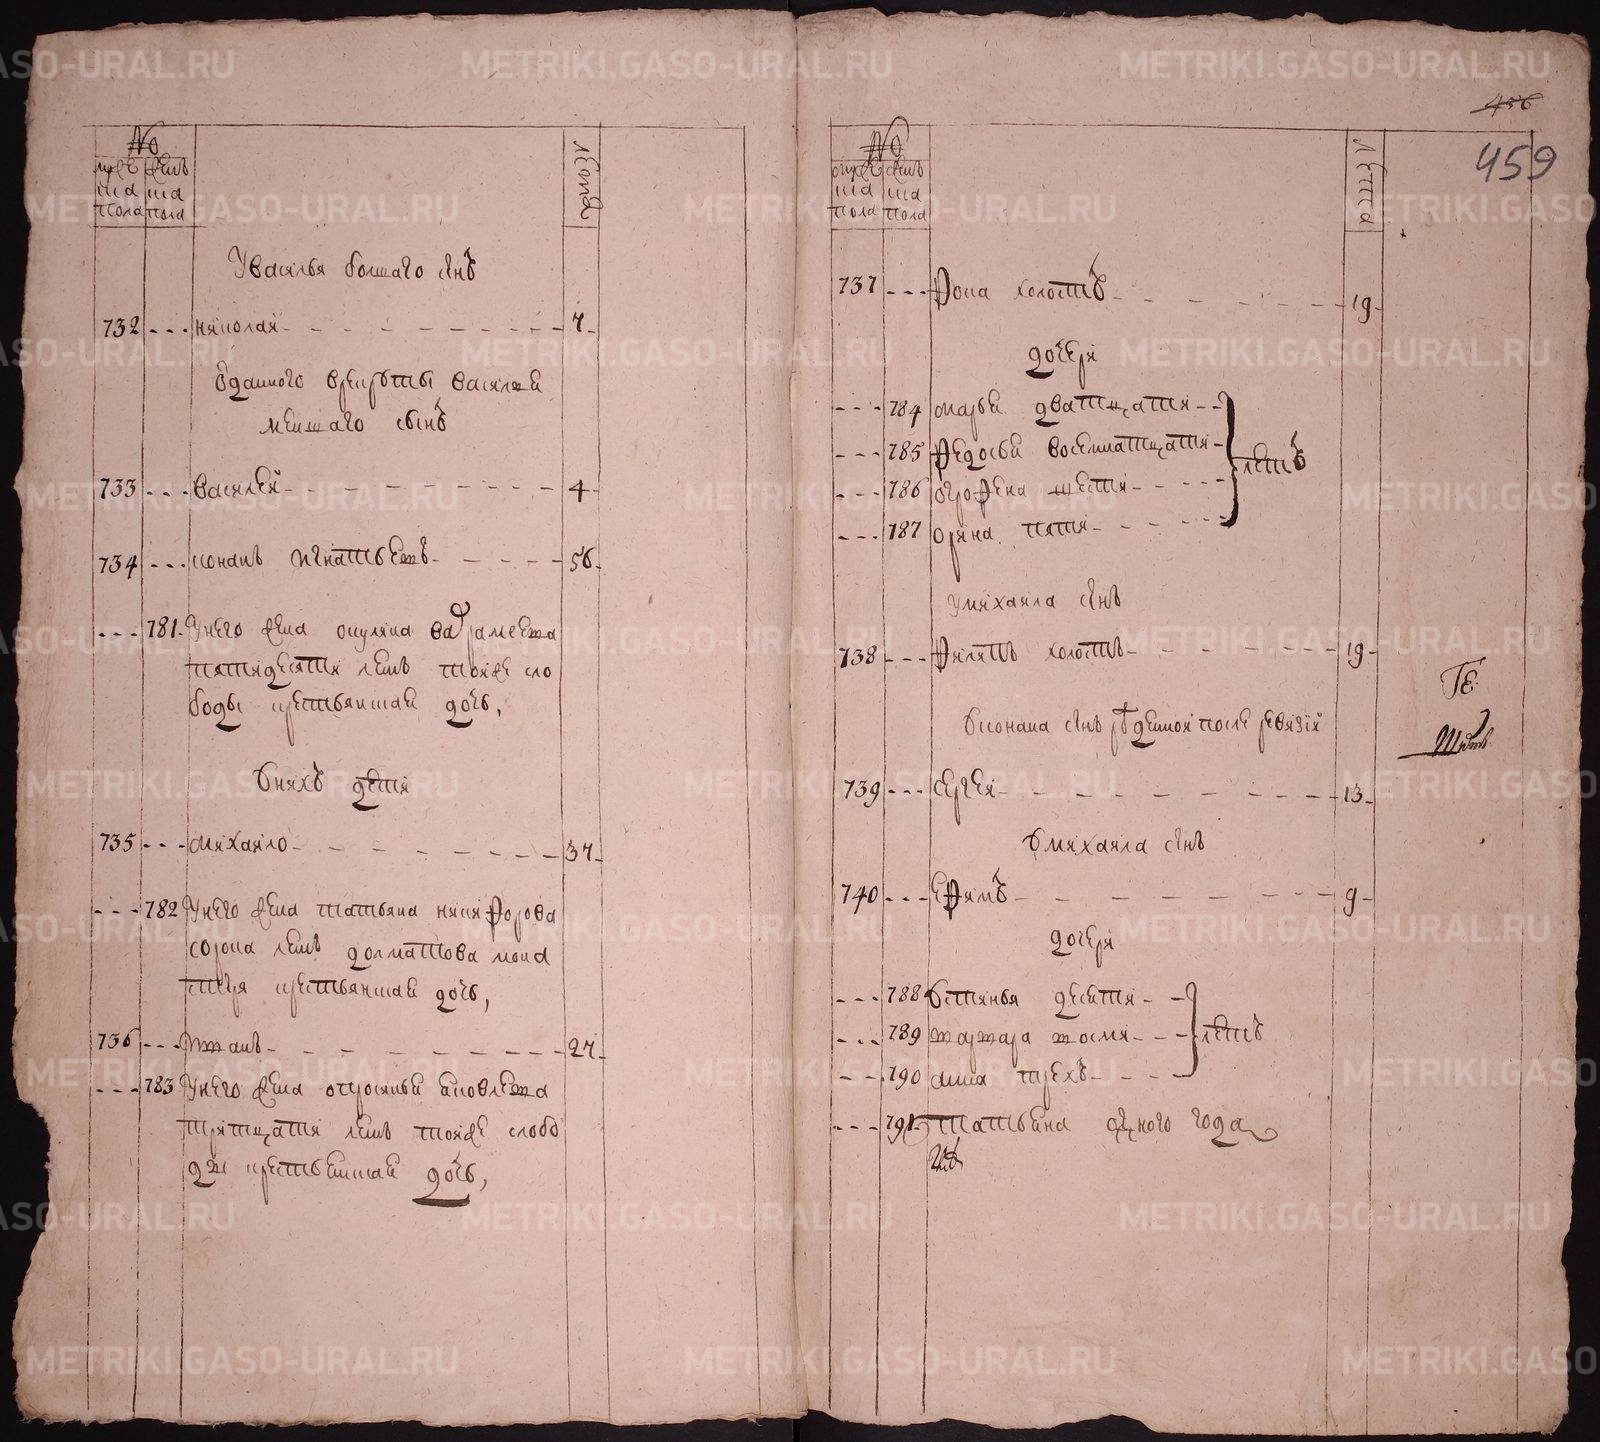 №
муже женъ
ска ска
пола пола
лета
У василья болшаго сынъ
732 николай 7
Отданного врекруты василья
меншаго сынъ
733 василей 4
734 конанъ игнатьевъ 56
781 Унего жена акулина варламова
пятидесяти летъ тояже сло
боды крестьянская дочь,
Унихъ дети
735 михайло 37
782 Унего жена татьяна никифорова
сорока летъ долматова мона
стыря крестьянская дочь,
736 иванъ 27
783 Унего жена афросинья
тритцати летъ тояже слобо
ды крестьянская дочь,
456
459
№
муже женъ
ска ска
пола пола
лета
737 Фока холостъ 19
дочери
784 марья дватцати
785 Федосья восемнатцати
786 огрофена шести
787 орина пяти
летъ
У михаила сынъ
738 Филипъ холостъ 19
Уконана сынъ рожденной после ревизии
739 сергей 13
Умихаила сынъ
740 ефимъ 9
дочери
788 устинья десяти
789 варвара восми
790 анна трехъ
летъ
791 татьяна одного года
METRIKI.GASO-URAL.RU